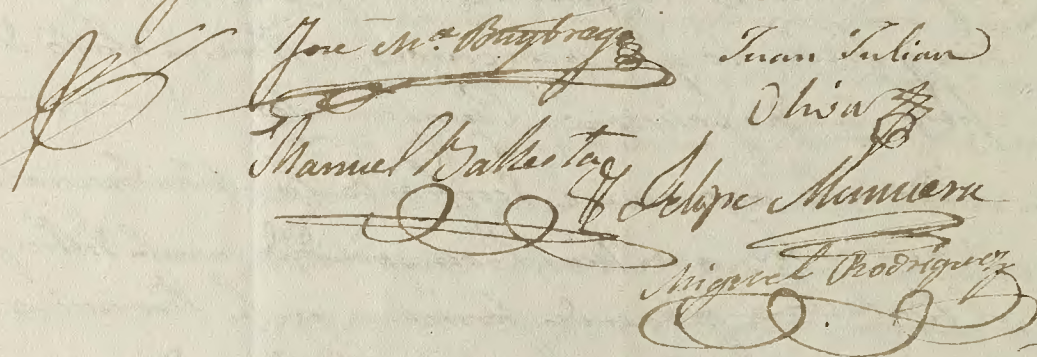 José Mª Buytrago
Juan Julian
Oliva
Manuel Ballesta
Felipe Munuera
Miguel Rodriguez